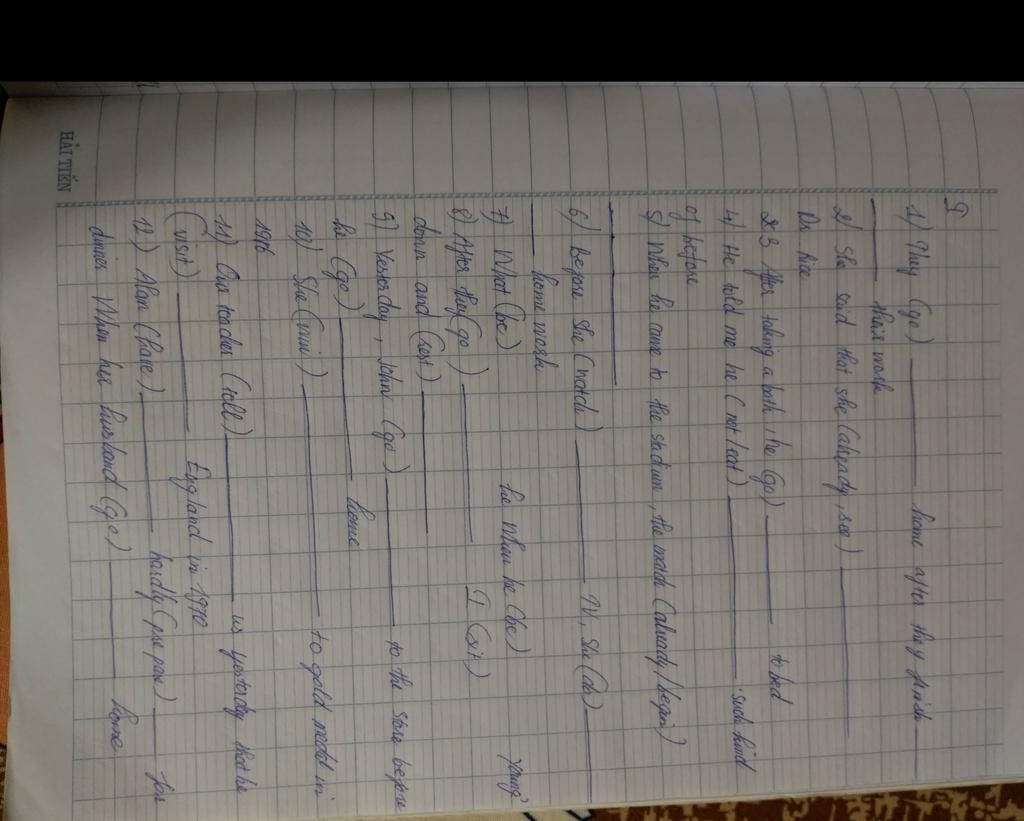 I
1) They (go) ________ home after they finish ____
____ their work
2) She said that she (already, see) ________
Dr. Rice
3 After taking a bath, he (go) ________ to bed
4) He told me he (not/eat) ________ such kind
of before
5) When he came to the stadium, the match (already/begin)
________
6) Before she (watch) ________ TV, She (do) ____
____ home work
7) What (be) he when he (be) young?
8) After they (go) ________ I (sit)
down and (rest) ________
9) Yesterday, John (go) ________ to the store before
he (go) ________ home
10) She (win) ________ to gold medal in
1986
11) Our teacher (tell) ________ us yesterday that he
(visit) ________ England in 1970
12) Alan (have) ________ hardly (prepare) ____ for
dinner When her husband (go) ________ home
HẢI TIẾN